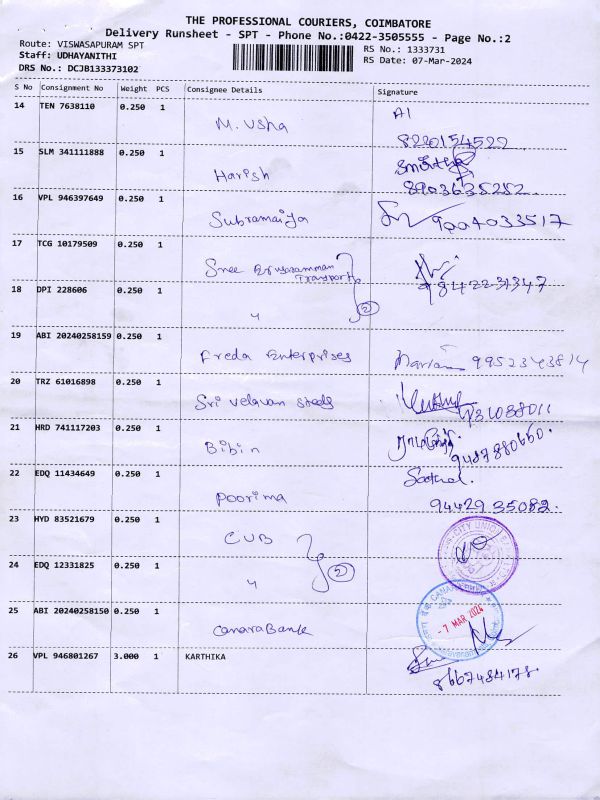 THE PROFESSIONAL COURIERS, COIMBATORE
Delivery Runsheet - SPT - Phone No.:0422-3505555 - Page No.:2
Route: VISWASAPURAM SPT
RS No.: 1333731
Staff: UDHAYANITHI
RS Date: 07-Mar-2024
DRS No.: DCJB133373102
S No Consignment No Weight PCS Consignee Details Signature
14 TEN 7638110 0.250 1 M. Usha
8220154522
15 SLM 341111888 0.250 1 Harish
8903635252
16 VPL 946397649 0.250 1 Subramaiya 9004033517
17 TCG 10179509 0.250 1 Transport
18 DPI 228606 0.250 1 " 2
19 ABI 20240258159 0.250 1 Freda Enterprises 9952343814
20 TRZ 61016898 0.250 1 Sri Velavan Steels
21 HRD 741117203 0.250 1 Bibin
9487880660.
22 EDQ 11434649 0.250 1 Poorima
94429 35082.
23 HYD 83521679 0.250 1 CUB
CITY UNION
24 EDQ 12331825 0.250 1 " 2
25 ABI 20240258150 0.250 1 Canara Bank
- 7 MAR 2024
26 VPL 946801267 3.000 1 KARTHIKA
8667484178.